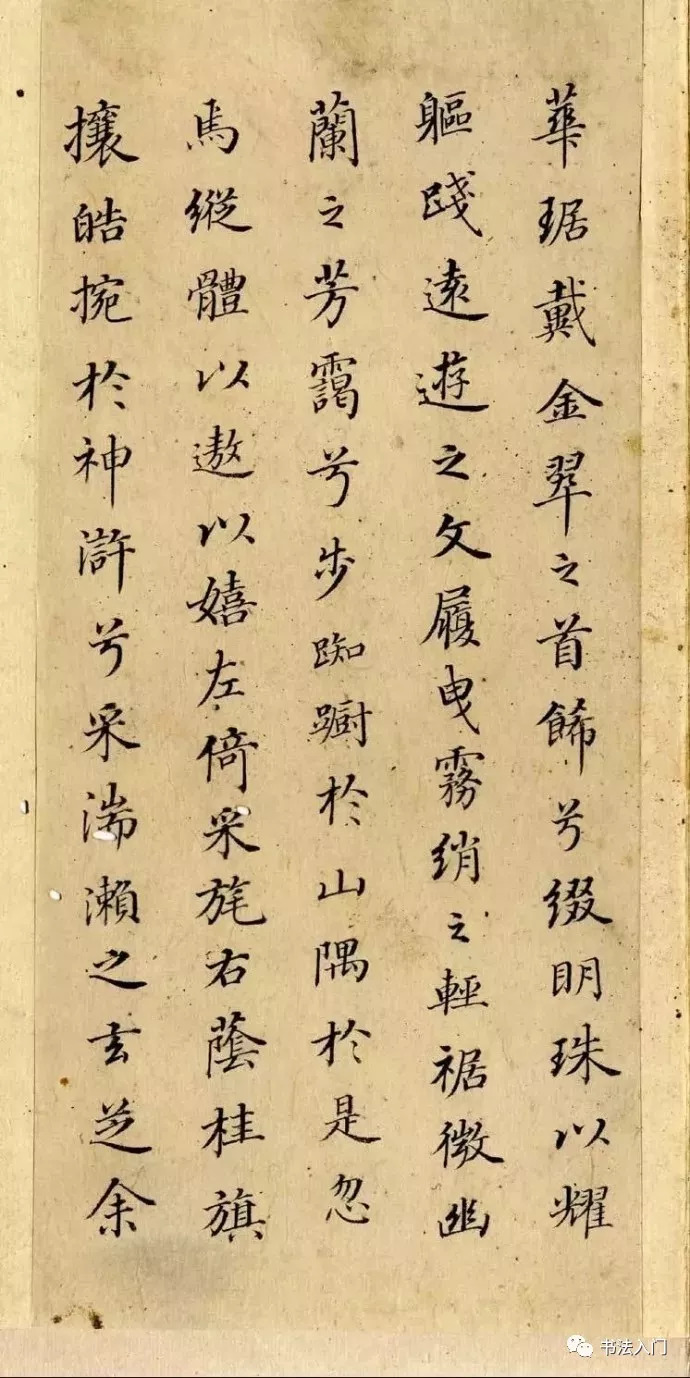 華琚戴金翠之首餙兮缀明珠以耀
軀踐遠遊之文履曳霧绡之輕裾微幽
蘭之芳靄兮步踟躕於山隅於是忽
焉縱體以遨以嬉左倚采旄右蔭桂旗
攘皓捥於神滸兮采湍瀨之玄芝余
书法入门